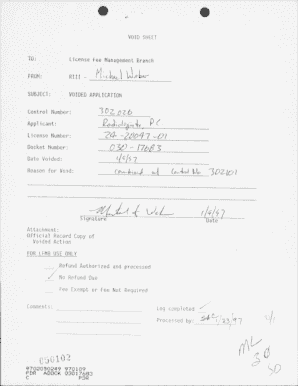 VOID SHEET
TO: License Fee Management Branch
FROM: RIII - Michael Weber
SUBJECT: VOIDED APPLICATION
Control Number: 302026
Applicant: Radiologists, PC
License Number: 24-20047-01
Docket Number: 030-17683
Date Voided: 1/9/97
Reason for Void: combined w/ Control No. 302101
Signature Date
1/9/97
Attachment:
Official Record Copy of
Voided Action
FOR LFMB USE ONLY
Refund Authorized and processed
✓ No Refund Due
Fee Exempt or Fee Not Required
Comments: Log completed ✓
Processed by: 1/23/97
ML
30
9702050289 970109
PDR ADOCK 03017683
C PDR